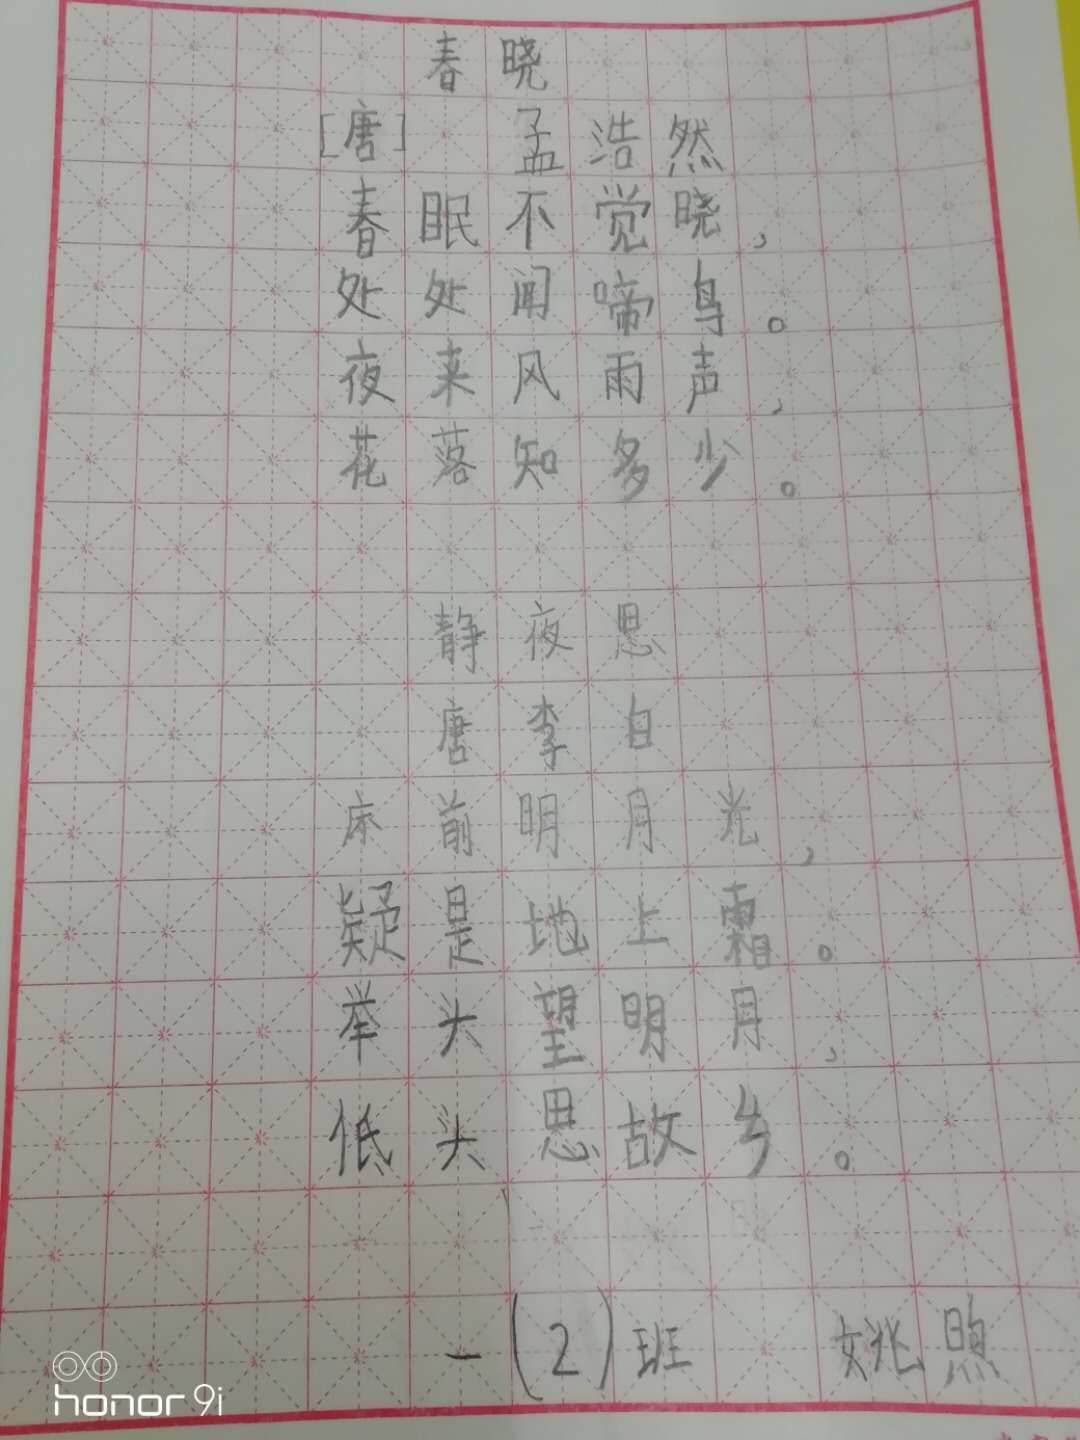 春晓
[唐] 孟浩然
春眠不觉晓，
处处闻啼鸟。
夜来风雨声，
花落知多少。
静夜思
唐李白
床前明月光，
疑是地上霜。
举头望明月，
低头思故乡。
一(2)班 姚煦
honor 9i